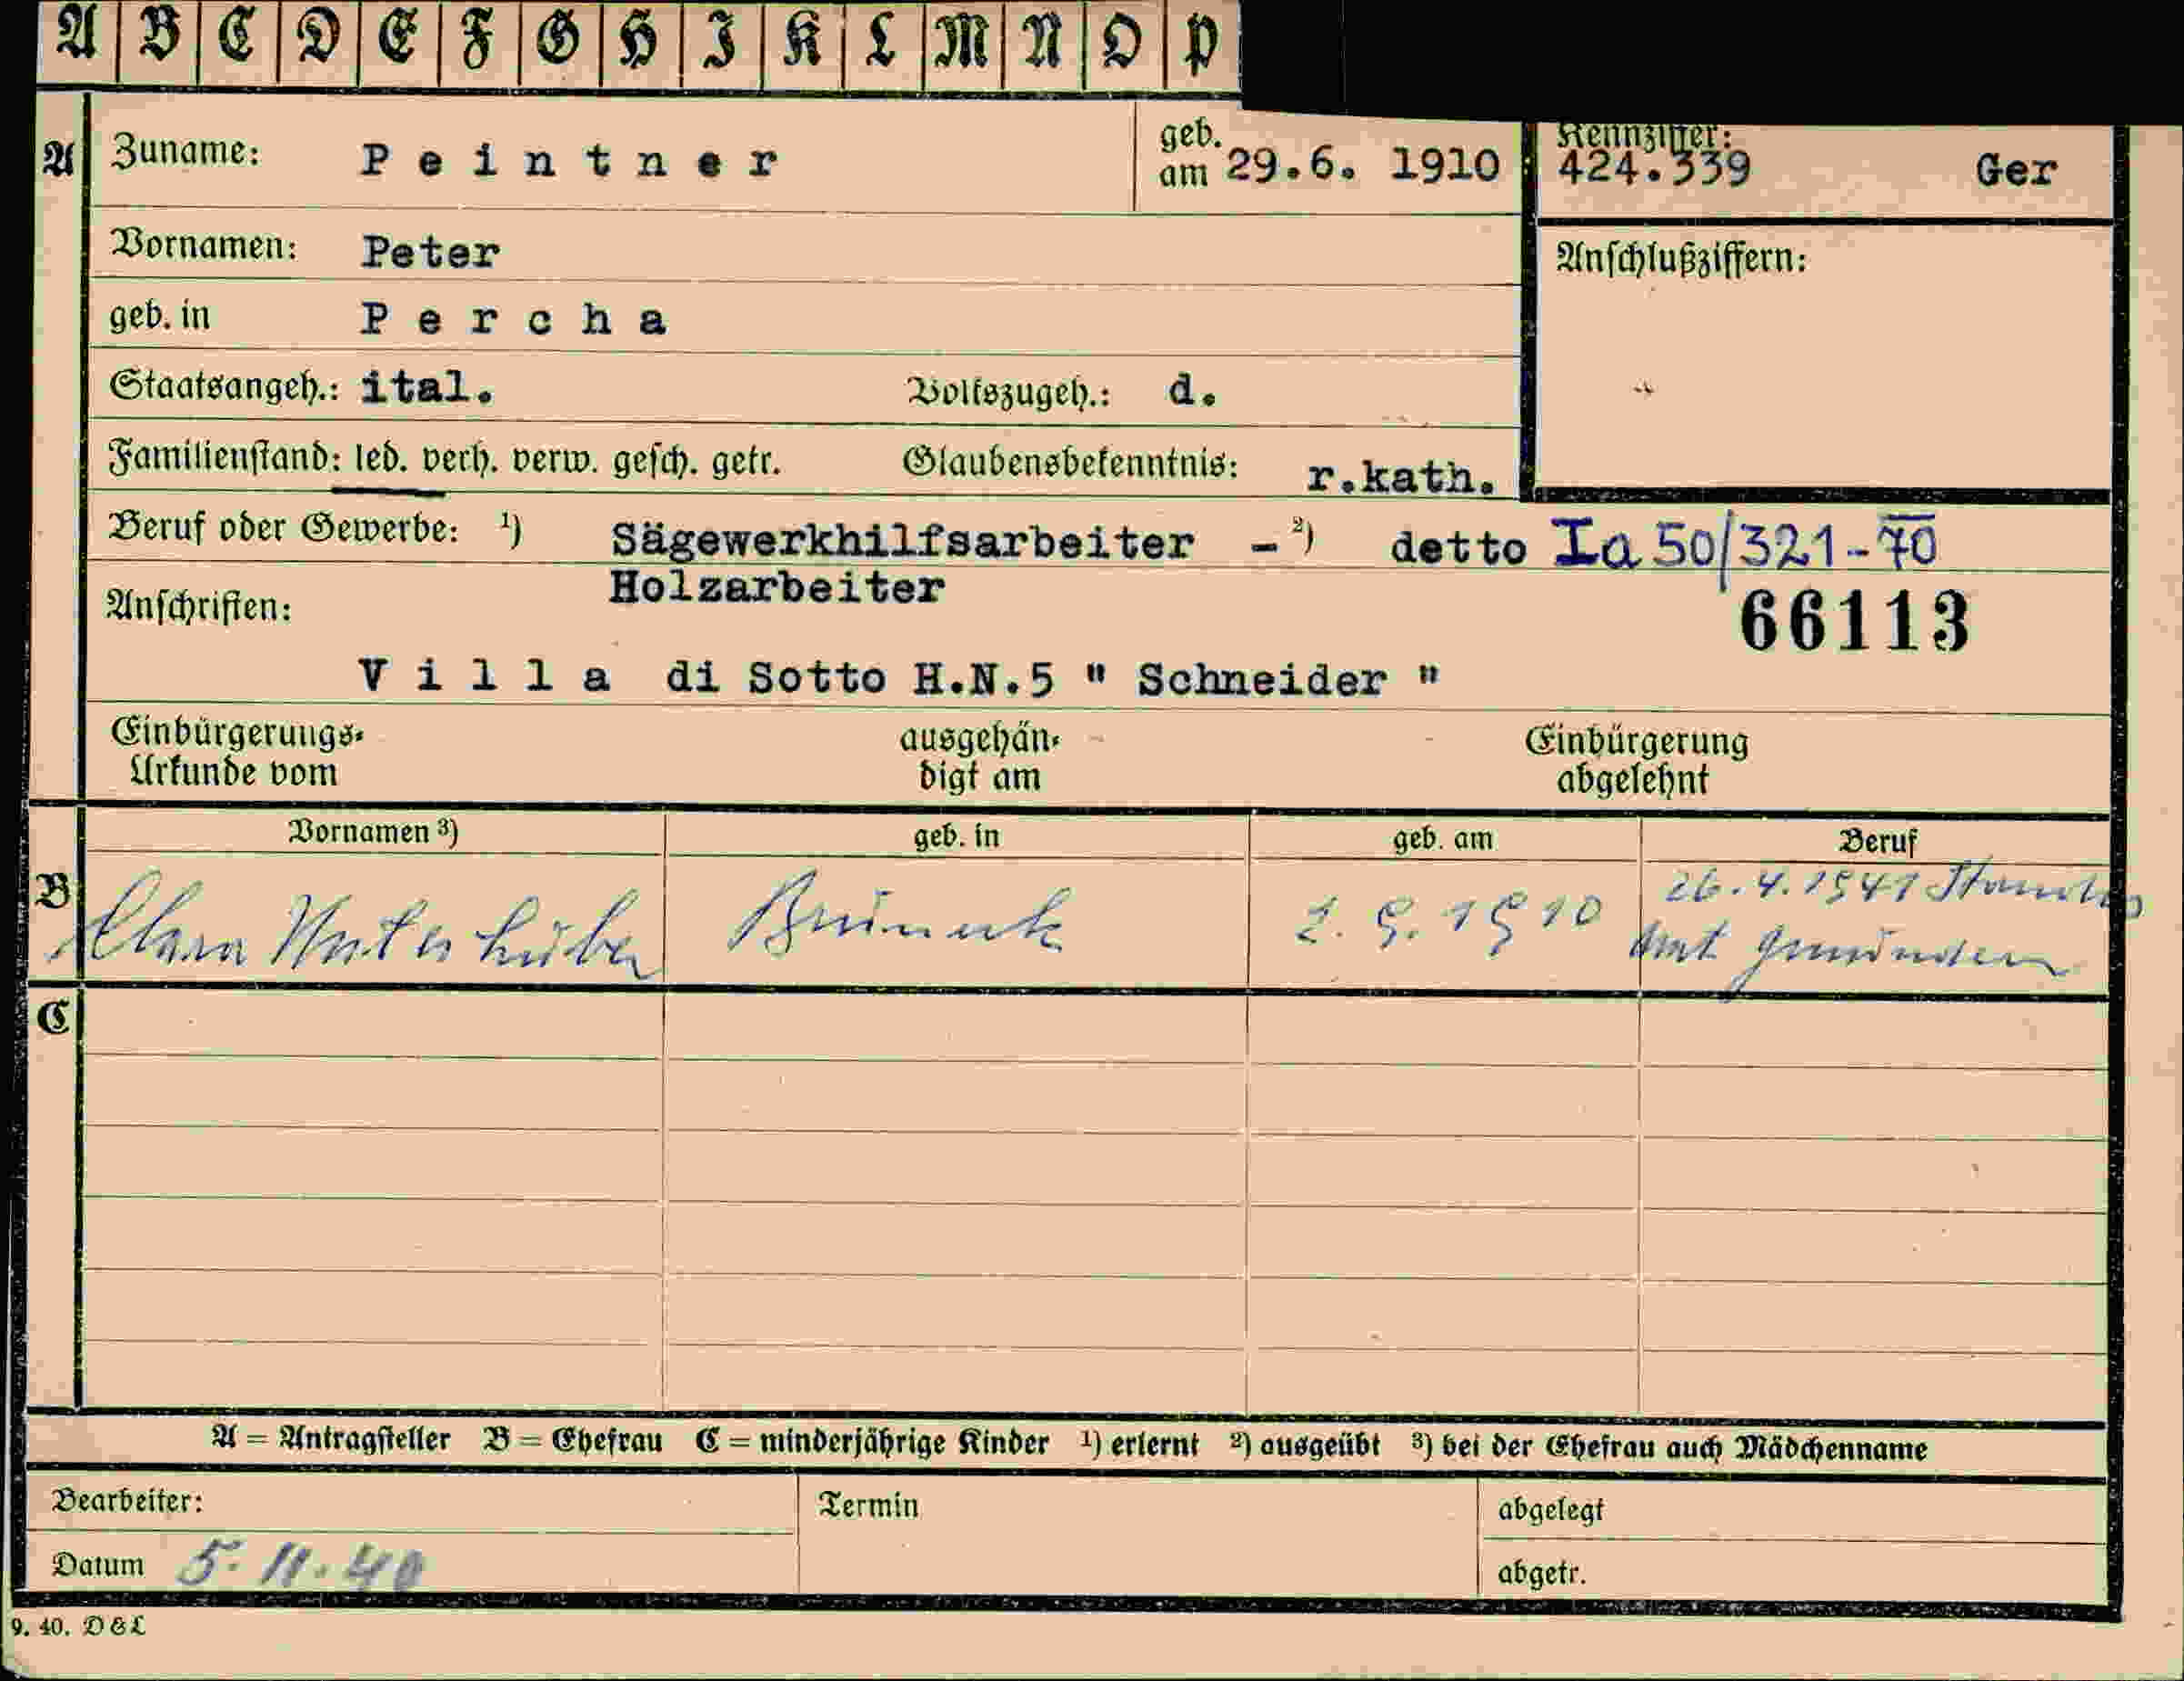 A B C D E F G H I K L M N O P
A Zuname: Peintner geb. am 29.6. 1910 Kennziffer: 424.339 Ger
Vornamen: Peter Anschlußziffern:
geb. in Percha
Staatsangeh.: ital. Volkszugeh.: d.
Familienstand: led. verh. verw. gesch. getr. Glaubensbekenntnis: r.kath.
Beruf oder Gewerbe: ¹) Sägewerkhilfsarbeiter - ²) detto Ia 50/321-70
Holzarbeiter
Anschriften: 66113
Villa di Sotto H.N.5 " Schneider "
Einbürgerungs- ausgehän- Einbürgerung
Urkunde vom digt am abgelehnt
Vornamen ³) geb. in geb. am Beruf
B Clara Unterhuber Bruneck 2. 9. 1910 26. 4. 1941 Standes
Amt Gmunden
C
A = Antragsteller B = Ehefrau C = minderjährige Kinder ¹) erlernt ²) ausgeübt ³) bei der Ehefrau auch Mädchenname
Bearbeiter: Termin abgelegt
Datum 5. 11. 40 abgetr.
9. 40. D & L